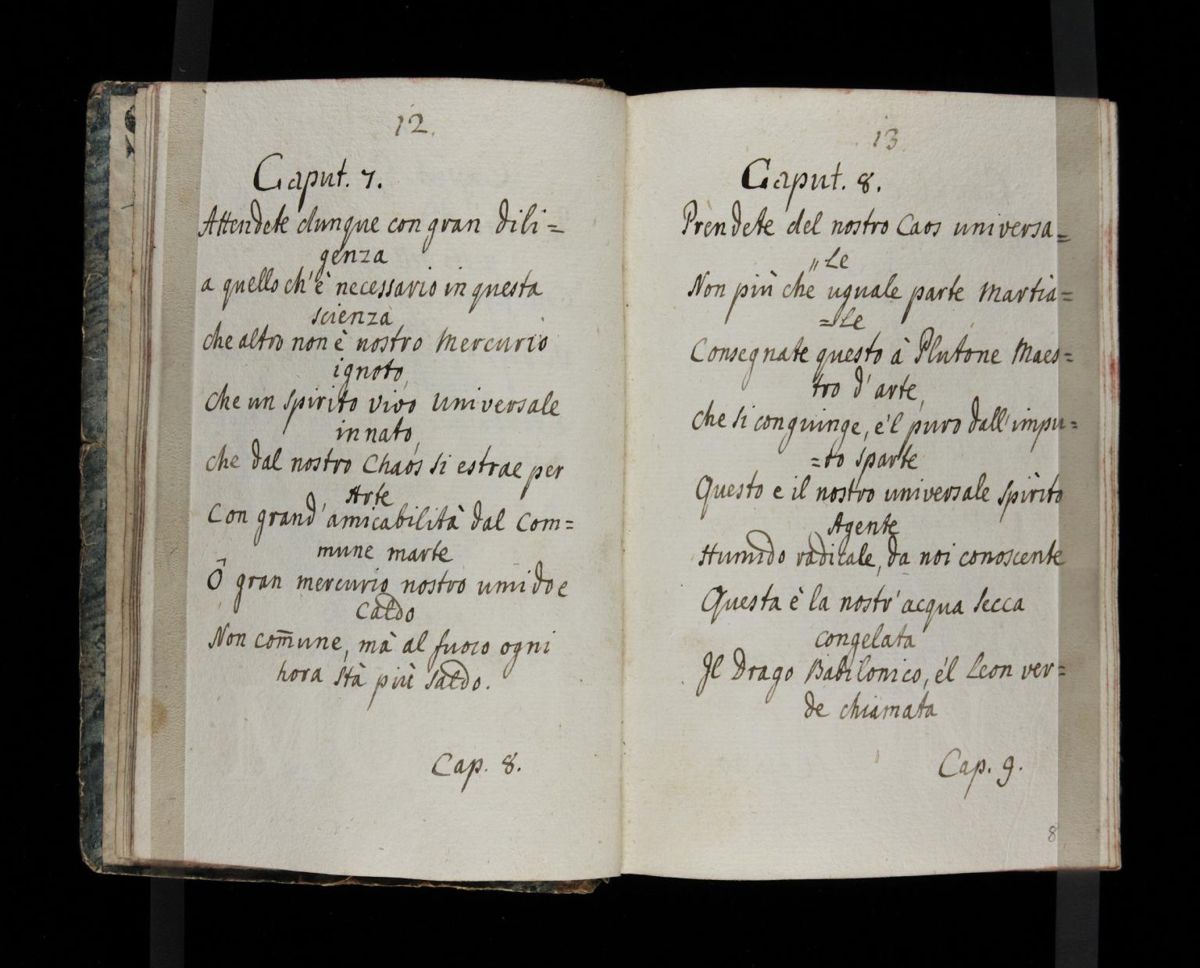 12.
Caput. 7.
Attendete dunque con gran dili=
genza
a quello ch'è necessario in questa
scienza
che altro non è nostro Mercurio
ignoto,
che un spirito vivo universale
innato,
che dal nostro Chaos si estrae per
Arte
Con grand' amicabilità dal Com=
mune marte
Ô gran mercurio nostro umido e
Caldo
Non com̄une, mà al fuoco ogni
hora stà più saldo.
Cap. 8.
13
Caput. 8.
Prendete del nostro Caos universa=
„le
Non più che uguale parte Martia=
=le
Consegnate questo à Plutone Maes=
tro d'arte,
che si conguinge, e'l puro dall'impu=
=to sparte
Questo e il nostro universale spirito
Agente
Humido radicale, da noi conoscente
Questa è la nostr' acqua secca
congelata
Il Drago Babilonico, e'l Leon ver=
de chiamata
Cap. 9.
8